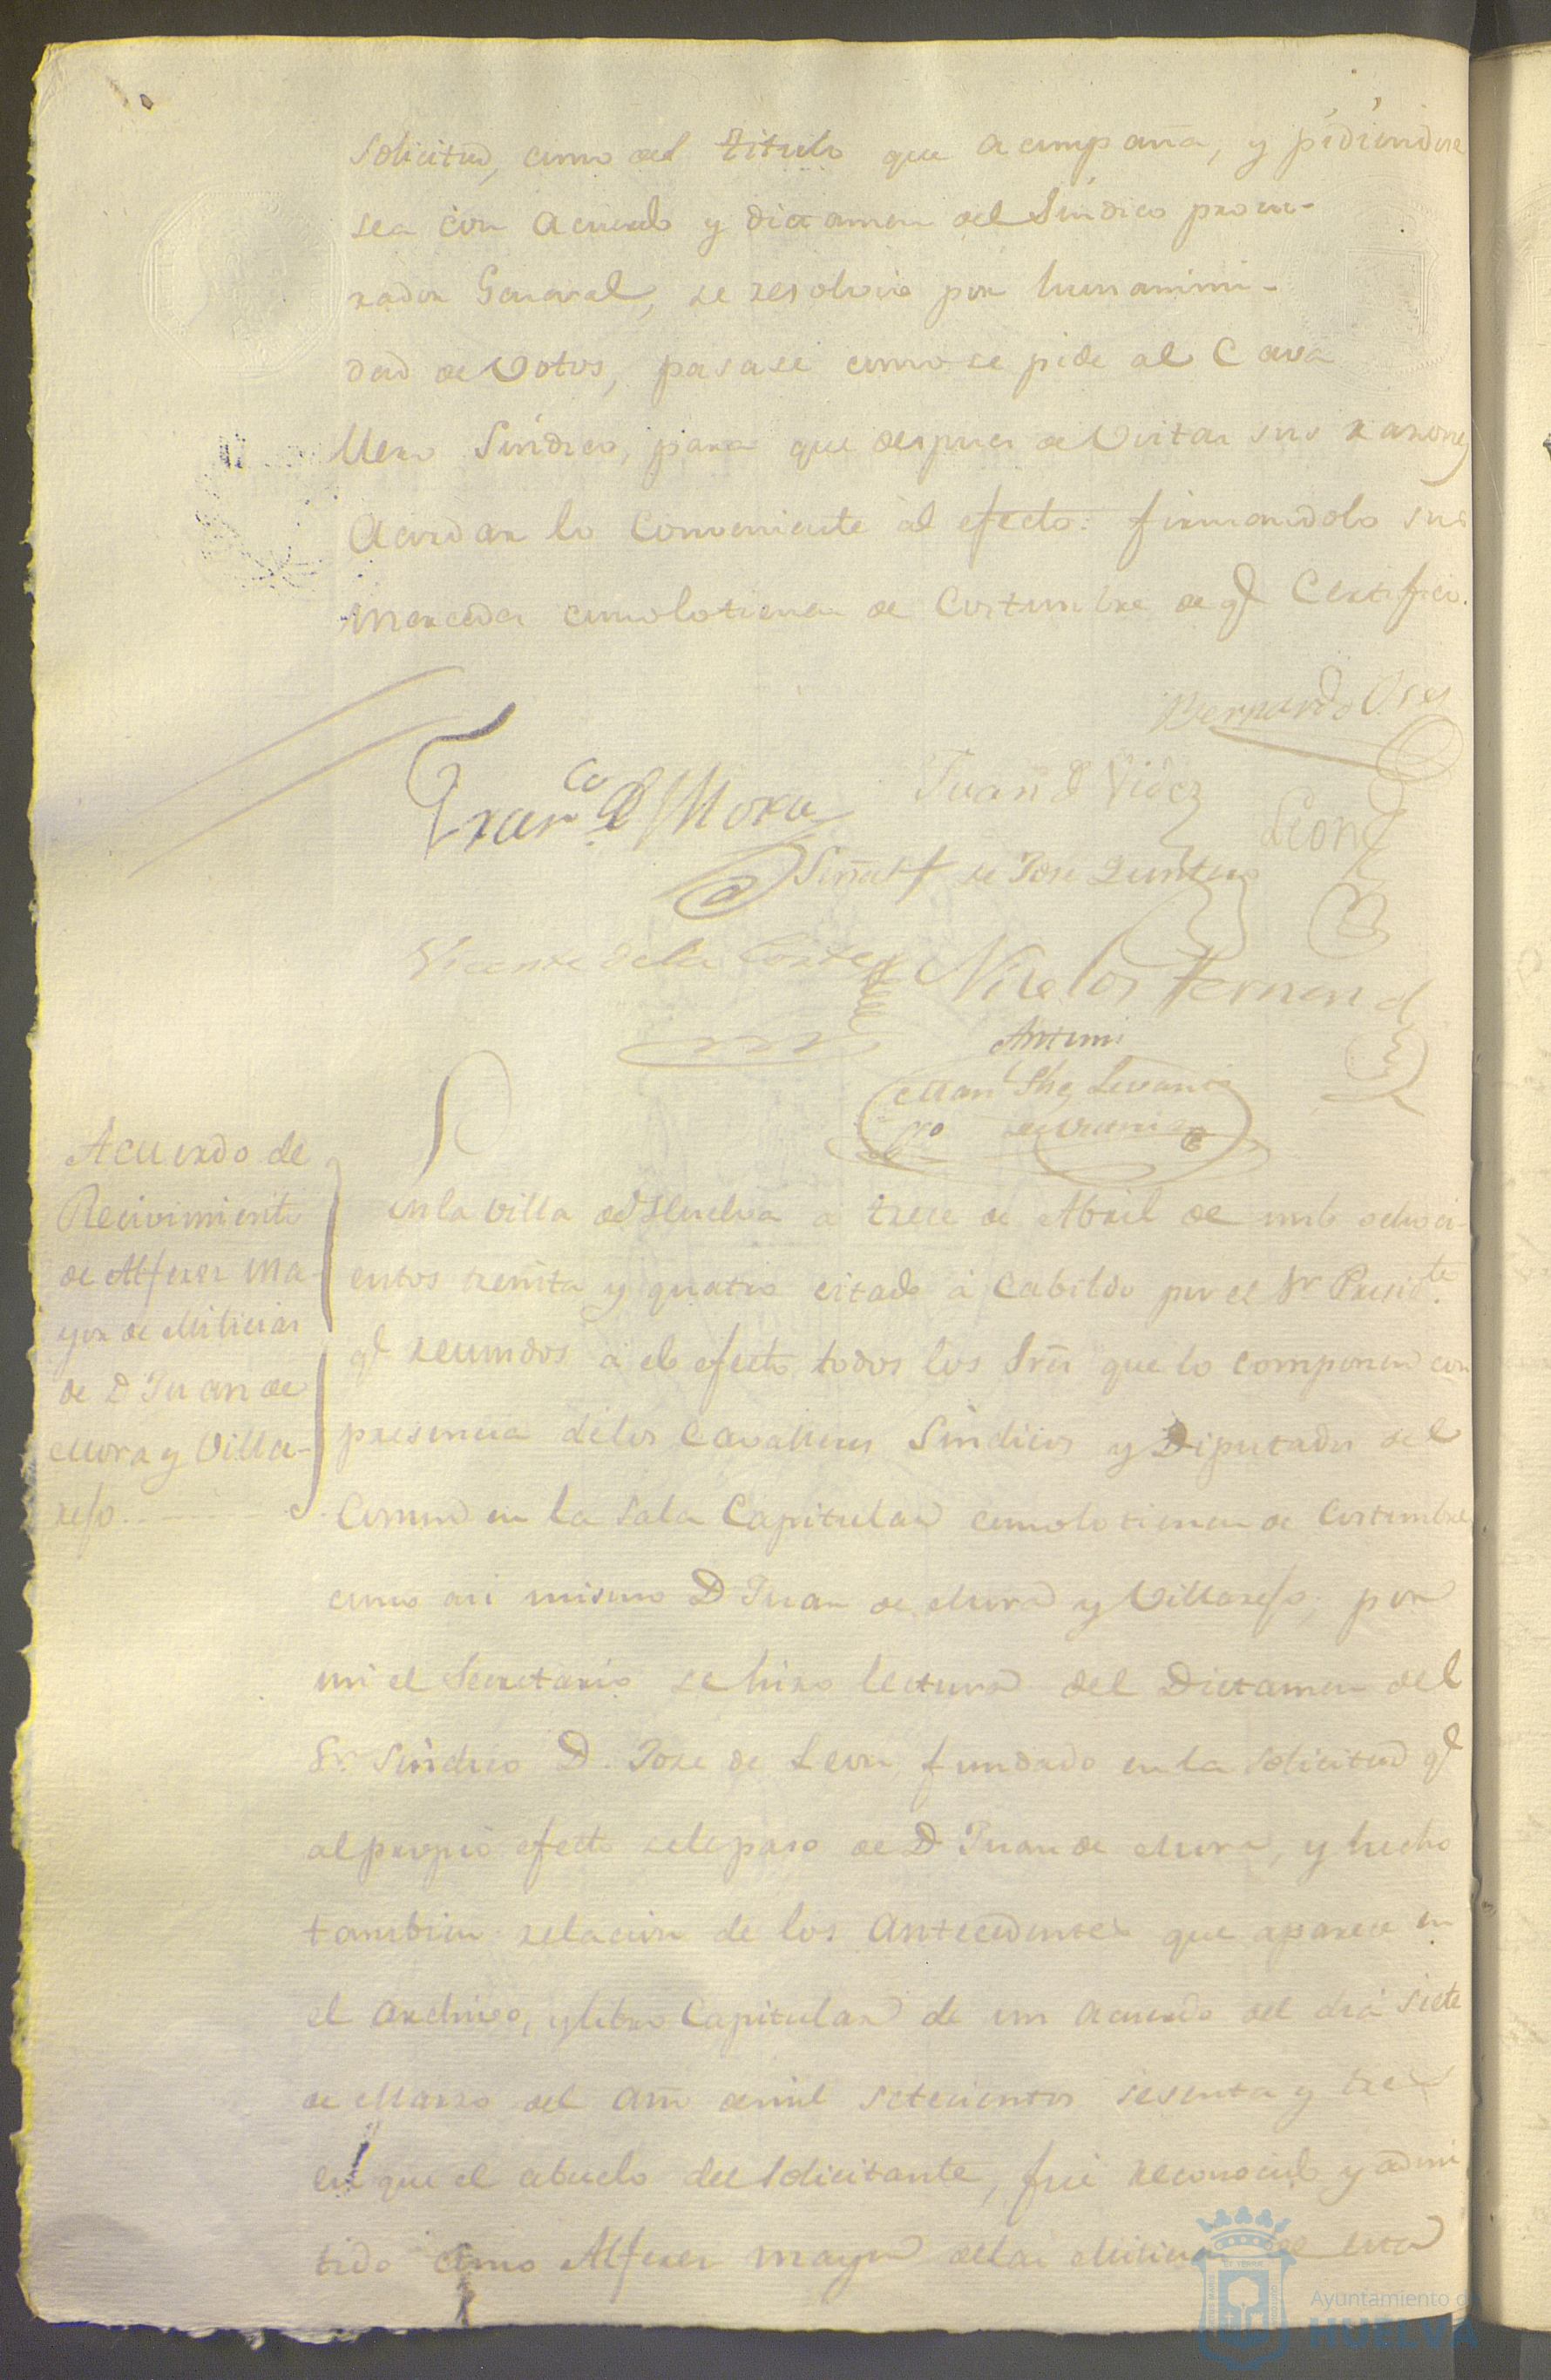 Solicitud, como del titulo que acompaña, y pidiendose
sea con acuerdo y dictamen del Sindico procu-
rador General, se resolvio por hunanimi-
dad de Votos, pasase como se pide al Cava
llero Sindico, para que despues de Vistas sus razones
Acordar lo Conveniente al efecto: firmandolo sus
mercedes como lo tienen de Costumbre de q.e Certifico.
Bernardo
Fran.co de Mora
Juan
Leon
Señal + de Jose Quintero
Vicente de la Corte
Nicolas Fernand
Antemi
Man
Acuerdo de
Recivimiento
de Alferez Ma-
yor de Milicias
de D Juan de
Mora y Villa-
reso
En la villa de Huelva a trece de Abril de mil ochoci-
entos treinta y quatro citado a Cabildo por el Sr Presid.te
q.e reunidos a el efecto todos los Sres que lo componen con
presencia de los Cavalleros Sindicos y Diputados del
Comun en la Sala Capitular como lo tienen de Costumbre
como asi mismo D Juan de Mora y Villareso, por
mi el Secretario se hizo lectura del Dictamen del
Sr Sindico D. Jose de Leon, fundado en la Solicitud q.e
al propio efecto se le paso de D Juan de Mora, y hecho
tambien relacion de los Antecedentes que aparece en
el Archivo, y libro Capitular de un Acuerdo del dia siete
de Marzo del año de mil setecientos sesenta y tres
en que el abuelo del Solicitante, fue reconocido y admi
tido como Alferez mayor de las Milicias de esta
Ayuntamiento de
HUELVA